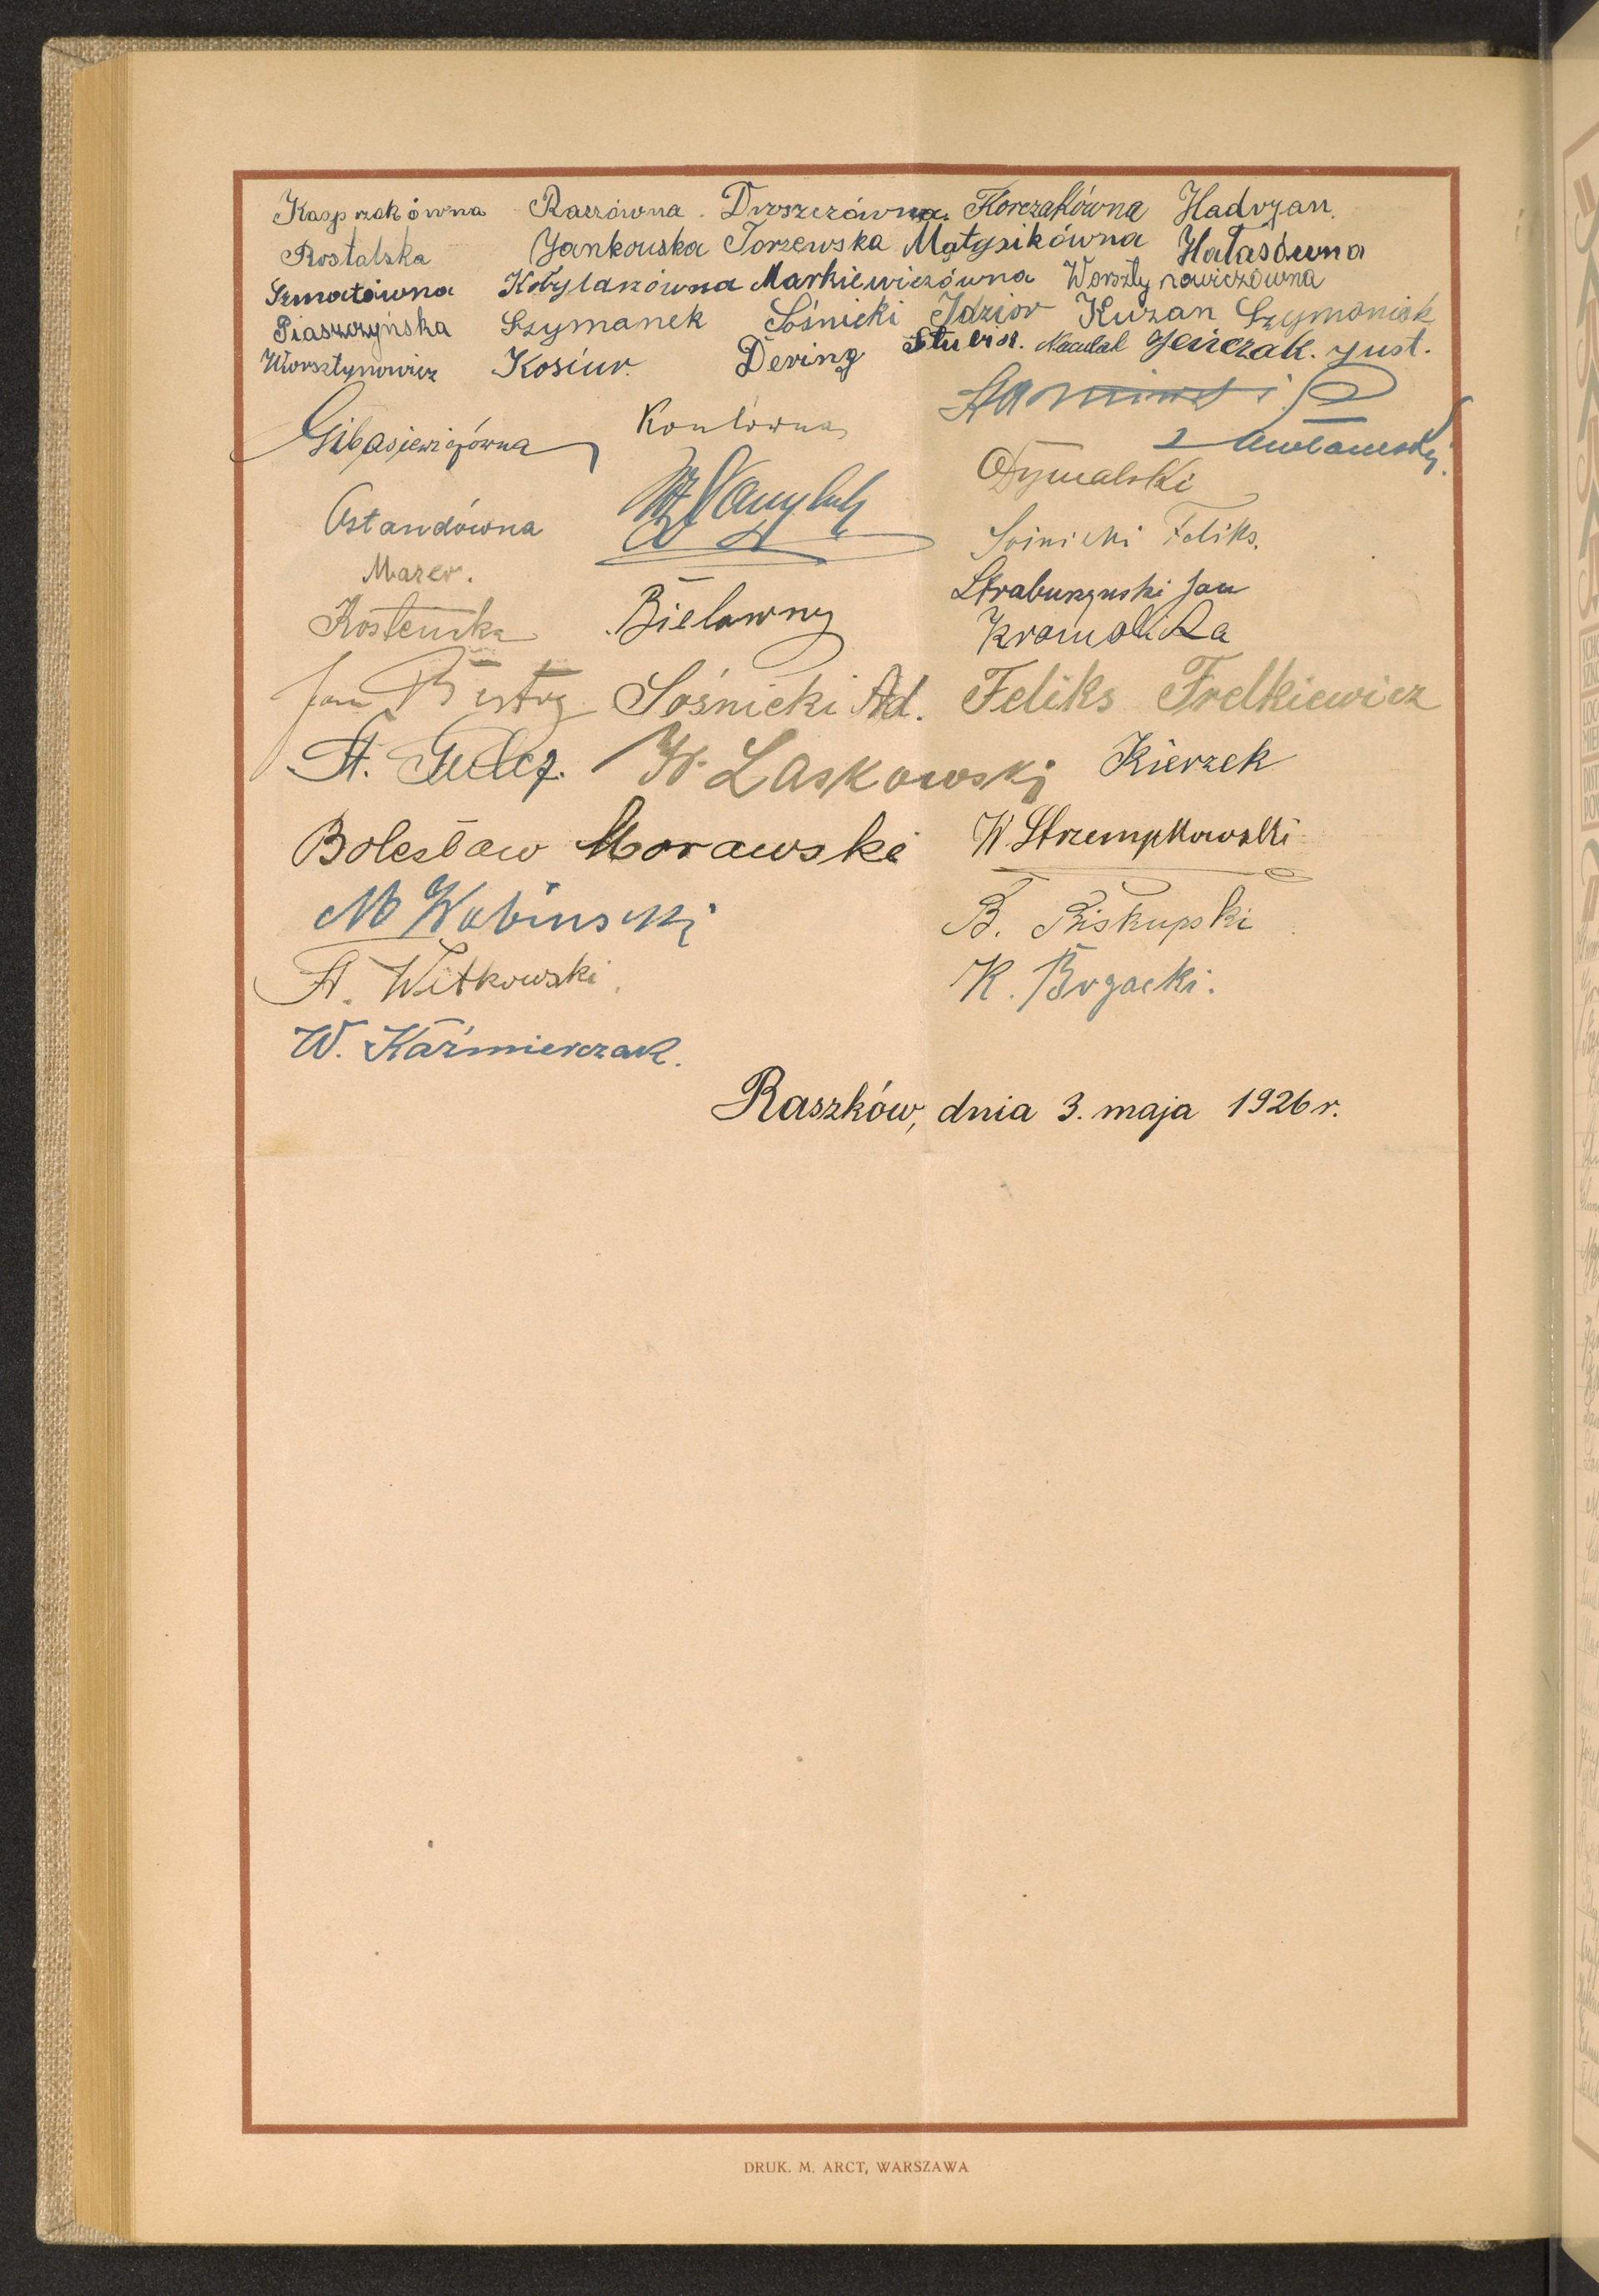 Kasprzakówna Raszówna. Droszczówna. Korczakówna Hadryan.
Rostalska Jankowska Torzewska Matysikówna Hałasówna
Szmatówna Kobylarzówna Markiewiczówna Worsztynowiczówna
Piaszczyńska Szymanek Sośnicki Idzior Kurzan Szymoniak
Worsztynowicz Kosiur. Dering Jeńczak. Just.
Gibasiewiczówna
Dymalski
Ostandówna
Feliks.
Mazer.
Straburzyński Jan
Bielawny
Jan Bystry Sośnicki Ad. Feliks Frelkiewicz
St. W. Laskowski Kierzek
Bolesław Morawski W Strzempkowski
M Wabinski B. Biskupski
St. Witkowski. K. Bogacki.
W. Kaźmierczak.
Raszków, dnia 3. maja 1926 r.
DRUK. M. ARCT, WARSZAWA